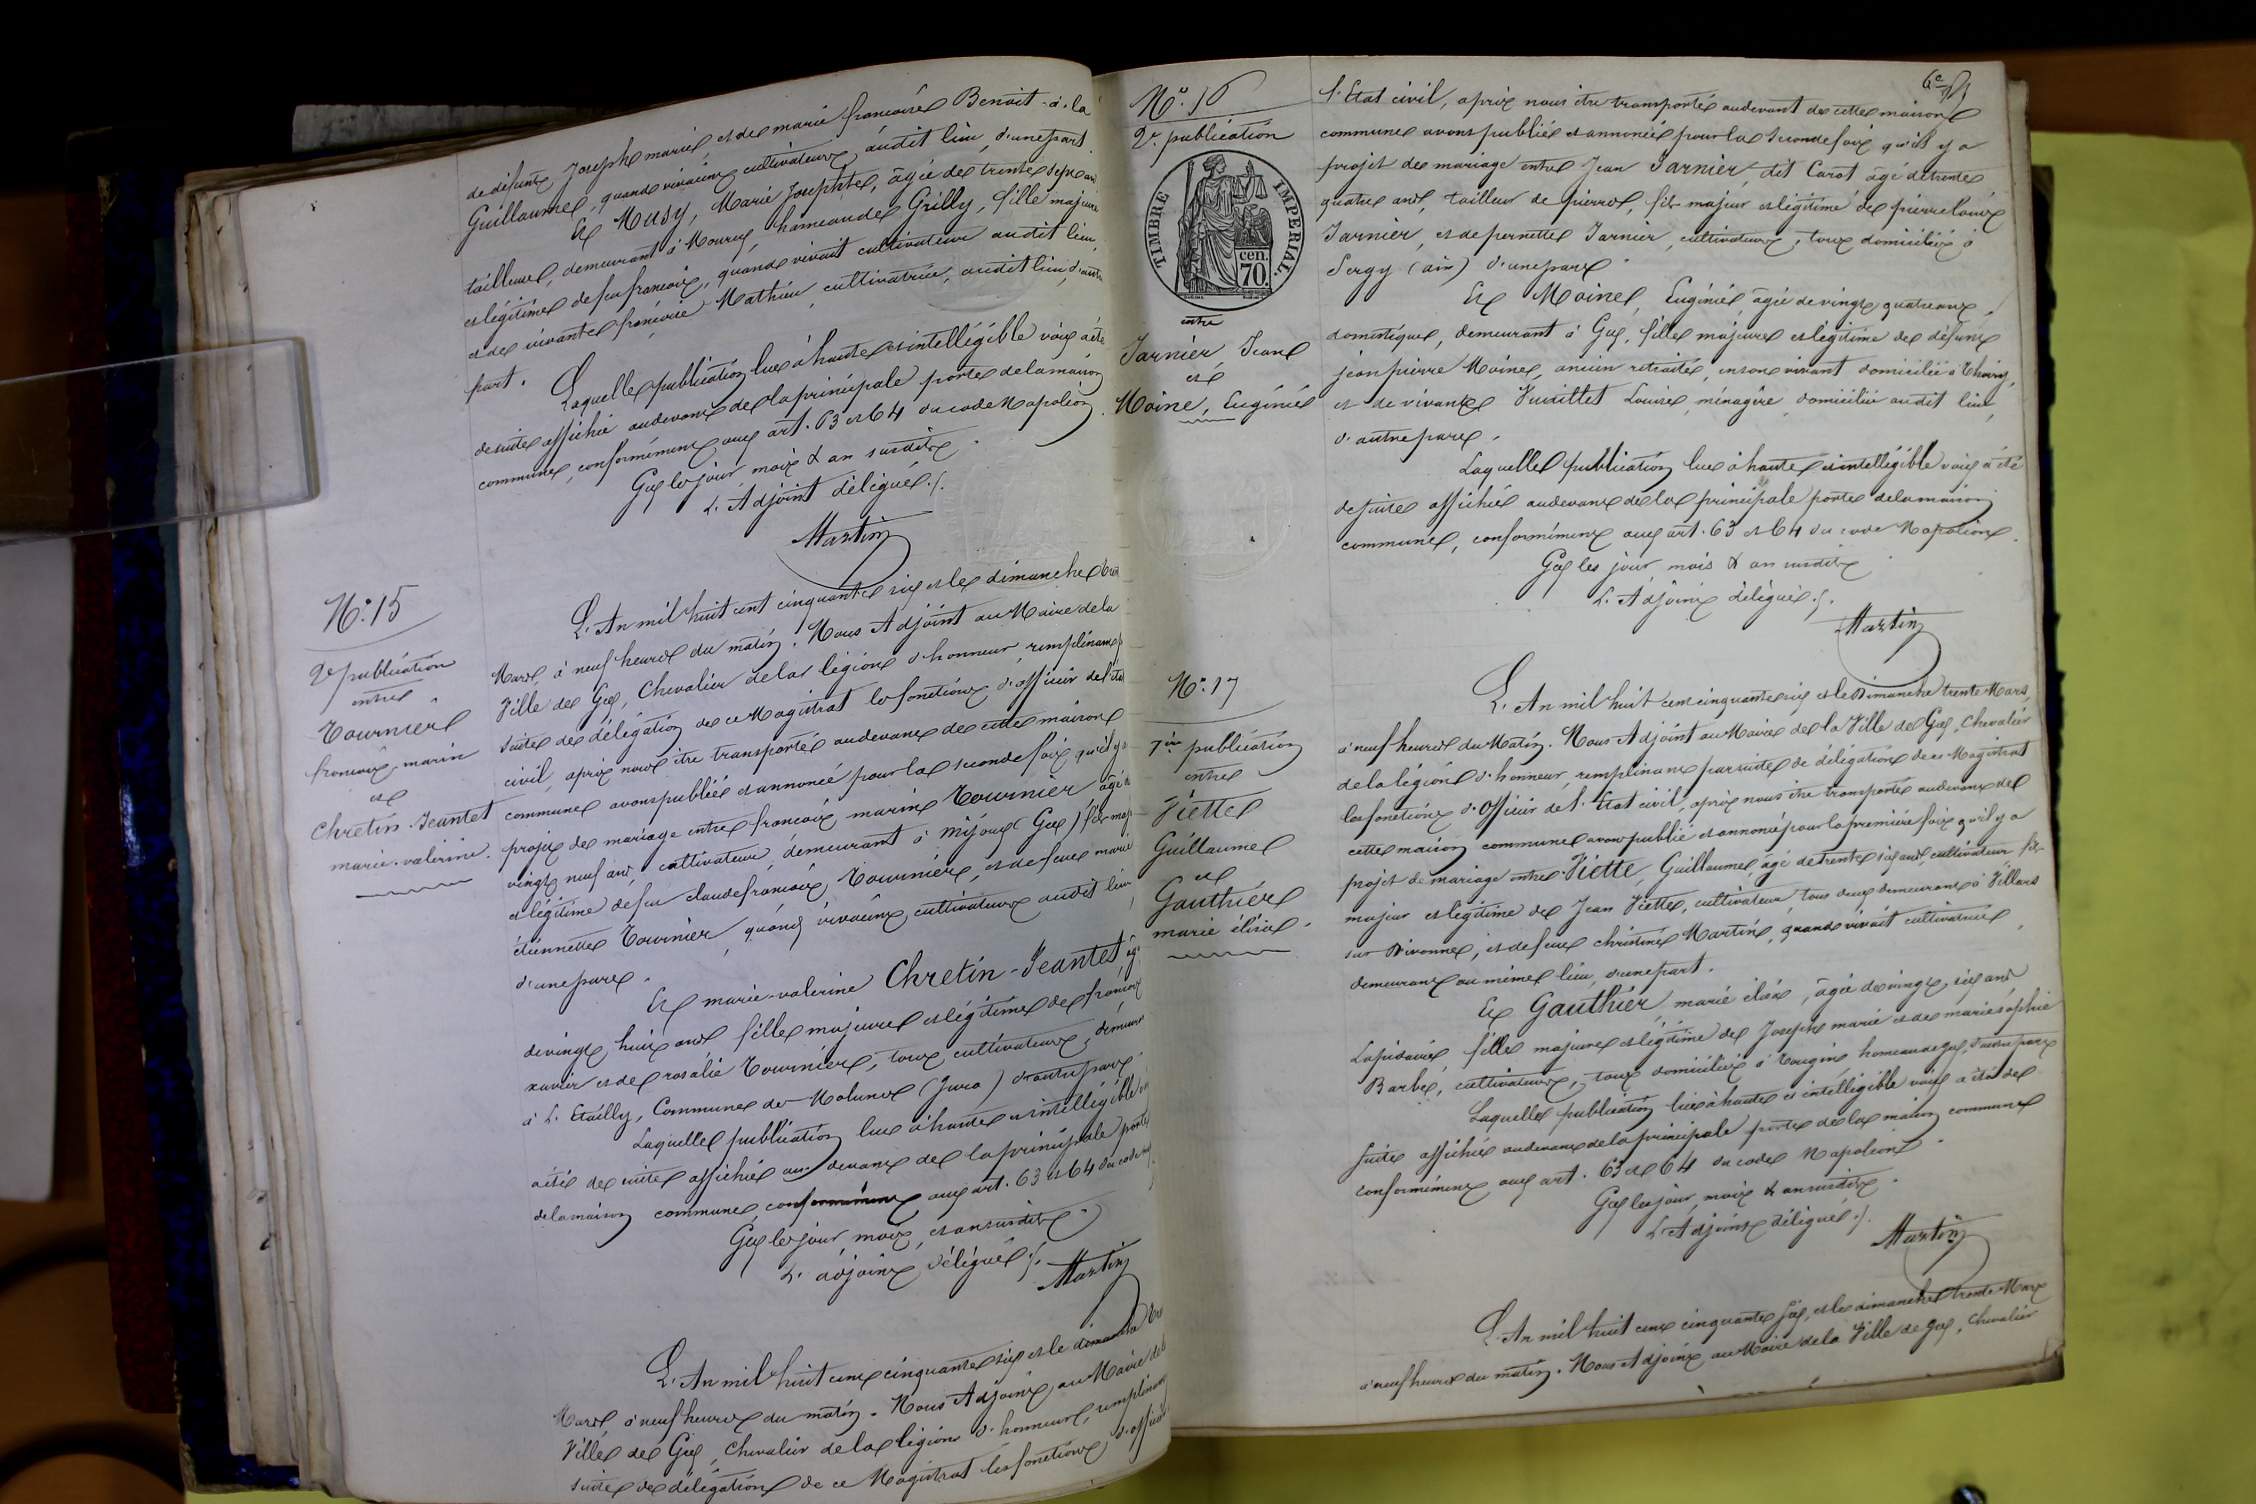 de défunts Joseph marie, et de marie françoise Benoit-à-la
Guillaume, quand vivaient cultivateurs audit lieu, d'une part.
Et Musy, Marie Josephte, âgée de trente sept ans
tailleuse, demeurant à Mourex, hameau de Grilly, fille majeure
et légitime de feu françois, quand vivait cultivateur audit lieu,
et de vivante françoise Mathieu, cultivatrice, audit lieu, d'autre
part.
Laquelle publication lue à haute et intelligible voix a été
de suite affichée au devant de la principale porte de la maison
commune, conformément aux art. 63 et 64 du code Napoléon.
Gex les jour, mois & an susdits.
L'Adjoint délégué./.
Martin
No. 15
2e publication
entre
Tournier
françois-marin
et
Chretin-Jeantet
marie-valerine.
L'An mil huit cent cinquante six et le dimanche
Mars, à neuf heures du matin. Nous Adjoint au Maire de la
Ville de Gex, Chevalier de la légion d'honneur, remplissant
suite de délégation de ce Magistrat les fonctions d'officier de l'état
civil, après nous être transporté au devant de cette maison
commune avons publié et annoncé pour la seconde fois qu'il y a
projet de mariage entre françois marin Tournier âgé de
vingt neuf ans, cultivateur, demeurant à Mijoux (Gex) fils maj
et légitime de feu claude françois Tournier, et de feue marie
étiennette Tournier, quand vivaient cultivateurs audit lieu
d'une part.
Et marie-valerine Chretin-Jeantet âg
de vingt huit ans fille majeure et légitime de françois
xavier et de rosalie Tournier, tous cultivateurs, demeur
à L'Etailly, Commune de Molunes (Jura) d'autre part.
Laquelle publication lue à haute et intelligible
a été de suite affichée au devant de la principale porte
de la maison commune, conformément aux art. 63 et 64 du code
Gex les jour, mois, et an susdits.
L'adjoint délégué./.
Martin
L'An mil huit cent cinquante six et le dimanche
Mars, à neuf heures du matin. Nous Adjoint au Maire de la
Ville de Gex, Chevalier de la légion d'honneur, remplissant
suite de délégation de ce Magistrat les fonctions d'officier
No. 16
2e publication
TIMBRE IMPERIAL.
cen.
70.
entre
Jarnier, Jean
et
Moine, Eugénie
l'Etat civil, après nous être transporté au devant de cette maison
commune avons publié et annoncé pour la seconde fois qu'il y a
projet de mariage entre Jean Jarnier, dit Carot âgé de trente
quatre ans, tailleur de pierres, fils majeur et légitime de pierre louis
Jarnier, et de pernette Jarnier, cultivateurs, tous domiciliés à
Sergy (ain) d'une part.
Et Moine, Eugénie, âgée de vingt quatre ans,
domestique, demeurant à Gex, fille majeure et légitime de défunt
jean pierre Moine, ancien retraité, en son vivant domicilié à Thoiry,
et de vivante Vuaillet Louise, ménagère, domiciliée audit lieu,
d'autre part.
Laquelle publication lue à haute et intelligible voix a été
de suite affichée au devant de la principale porte de la maison
commune, conformément aux art. 63 et 64 du code Napoléon.
Gex les jour, mois & an susdits
L'Adjoint délégué./.
Martin
No. 17
1ère publication
entre
Viette
Guillaume
et
Gauthier
marie élisa.
L'An mil huit cent cinquante six et le Dimanche trente Mars,
à neuf heures du Matin. Nous Adjoint au Maire de la Ville de Gex, Chevalier
de la légion d'honneur, remplissant par suite de délégation de ce Magistrat
les fonctions d'Officier de l'Etat civil, après nous être transporté au devant de
cette maison commune avons publié et annoncé pour la première fois qu'il y a
projet de mariage entre Viette, Guillaume, âgé de trente six ans, cultivateur fils
majeur et légitime de Jean Viette, cultivateur tous deux demeurant à Villard
sur Divonne, et de feue christine Martine, quand vivait cultivatrice,
demeurant au même lieu, d'une part.
Et Gauthier, marie élisa, âgée de vingt six ans,
Lapidaire, fille majeure et légitime de Joseph marie et de marie sophie
Barbe, cultivateurs, tous domiciliés à Tougin hameau de gex, d'autre part.
Laquelle publication lue à haute et intelligible voix a été de
suite affichée au devant de la principale porte de la maison commune
conformément aux art. 63 et 64 du code Napoléon.
Gex les jour, mois & an susdits.
L'Adjoint délégué./.
Martin
L'An mil huit cent cinquante six, et le dimanche trente Mars
à neuf heures du matin. Nous Adjoint au Maire de la Ville de Gex, Chevalier